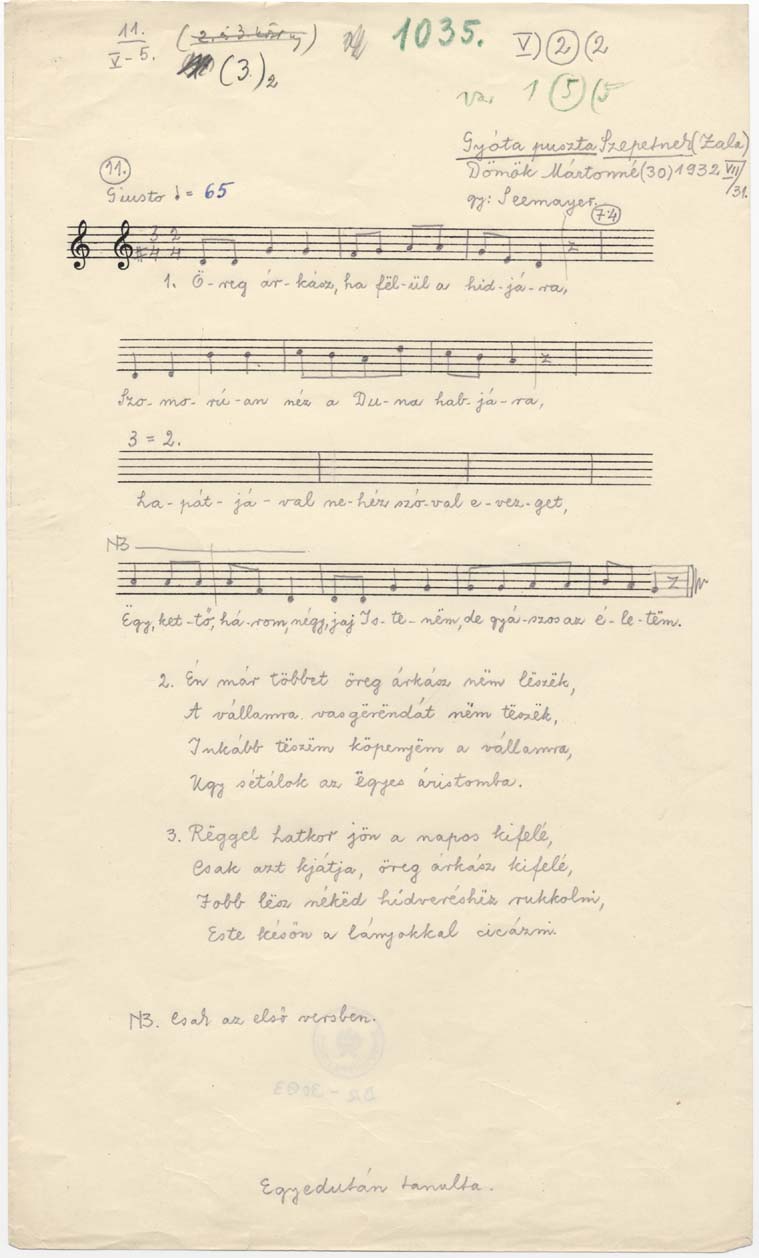 11.
V-5.
(2. és 3. )
(3.)2
1035.
V) 2 (2
va. 1 (5) (5
Gyóta puszta Szepetnek (Zala)
Dömök Mártonné (30) 1932 VII/31.
gy: Seemayer.
11.
Giusto ♩= 65
74
3 2
4 4
1. Ö-reg ár-kász, ha fël-ül a hid-já-ra,
Szo-mo-rú-an néz a Du-na hab-já-ra,
3 = 2.
La-pát-já-val ne-héz szó-val e-vez-get,
NB
Ëgy, ket-tő, há-rom, négy, jaj Is-te-nëm, de gyá-szos az é-le-tëm.
2. Én már többet öreg árkász nëm lëszëk,
A vállamra vasgërëndát nëm tëszëk,
Inkább tëszëm köpenyëm a vállamra,
Ugy sétálok az ëgyes áristomba.
3. Rëggel hatkor jön a napos kifelé,
Csak azt kjátja, öreg árkász kifelé,
Jobb lësz nékëd hídveréshëz rukkolni,
Este késön a lányokkal cicázni.
NB. Csak az első versben.
Egyedután tanulta.